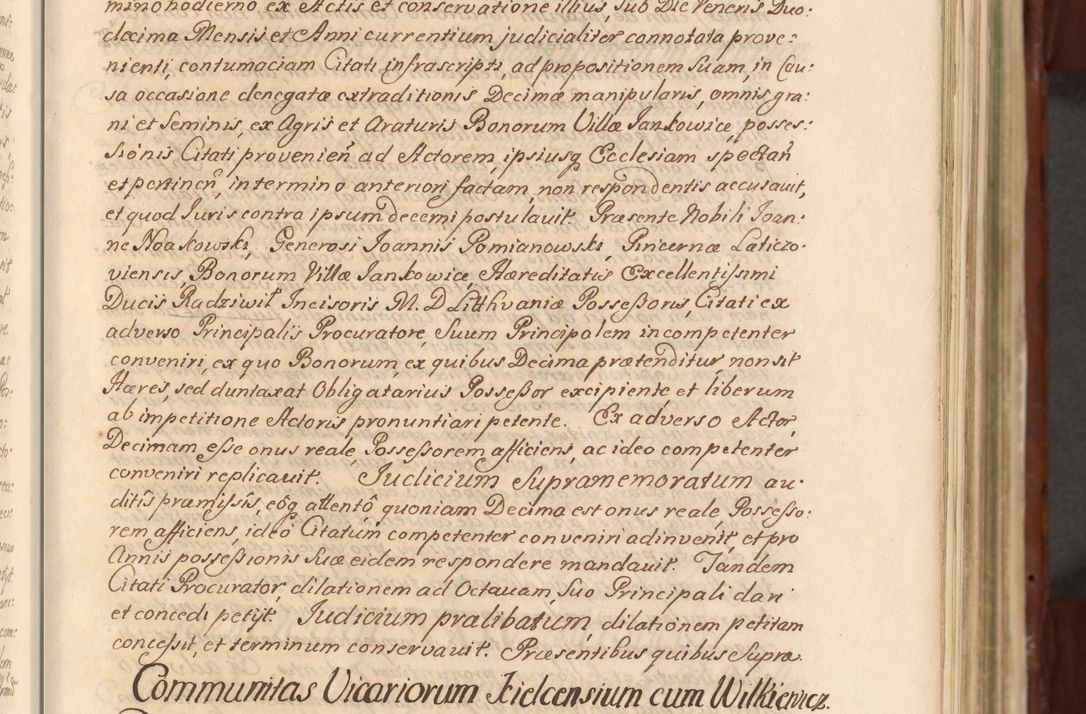 mino hodierno ex Actis et conservatione illius, sub Die Veneris Duo-
decima Mensis et Anni currentium judicialiter connotata prove:
nienti, contumaciam Citati infrascripti, ad propositionem suam, in Cau:
sa occasione denegatæ extraditionis Decimæ manipularis, omnis gra:
ni et Seminis, ex Agris et Araturis Bonorum Villæ Jankowice, posses:
sionis Citati provenien̄ ad Actorem, ipsiusq Ecclesiam spectan̄
et pertinen̄, in termino anteriori factam, non respondentis accusavit,
et quod Juris contra ipsum decerni postulavit. Præsente Nobili Joan:
ne Noakowski, Generosi Joannis Pomianowski, Pincernæ Laticzo-
viensis, Bonorum Villæ Jankowice, Hæreditatis Excellentissimi
Ducis Radziwił Incisoris M. D Lithvaniæ Possessoris, Citati ex
adverso Principalis Procuratore, Suum Principalem incompetenter
conveniri, ex quo Bonorum, ex quibus Decima prætenditur, non sit
Hæres, sed duntaxat Obligatarius Possessor excipiente et liberum
ab impetitione Actoris pronuntiari petente. Ex adverso Actor,
Decimam esse onus reale, Possessorem afficiens, ac ideo competenter
conveniri replicavit. Judicium Supramemoratum au-
ditis præmissis, eōq attentô quoniam Decima est onus reale, Possesso-
rem afficiens, ideo Citatum competenter conveniri adinvenit, et pro
Annis possessionis Suæ eidem respondere mandavit. Tandem
Citati Procurator, dilationem ad Octavam, Suo Principali dari
et concedi petijt. Judicium prælibatum, dilationem petitam
concessit, et terminum conservavit. Præsentibus quibus Supra.
Communitas Vicariorum Kielcensium cum Wilkiewicz.